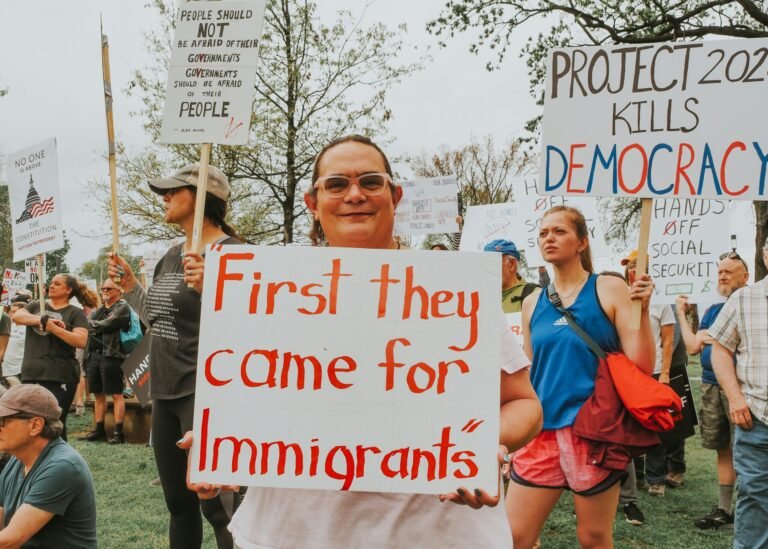 PEOPLE SHOULD
NOT
BE AFRAID OF THEIR
GOVERNMENTS
GOVERNMENTS
SHOULD BE AFRAID
OF THEIR
PEOPLE
- ALAN MOORE
V
NO ONE
IS ABOVE
THE
CONSTITUTION
"First they
came for
Immigrants"
PROJECT 202
KILLS
DEMOCRACY
HANDS
OFF
SOCIAL
SECURITY